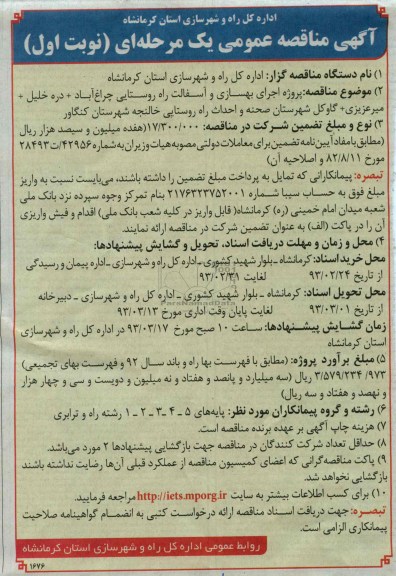 اداره کل راه و شهرسازی استان کرمانشاه
آگهی مناقصه عمومی یک مرحله‌ای (نوبت اول)
۱) نام دستگاه مناقصه گزار: اداره کل راه و شهرسازی استان کرمانشاه
۲) موضوع مناقصه: پروژه اجرای بهسازی و آسفالت راه روستایی چراغ‌آباد + دره خلیل +
میرعزیزی+ گاوکل شهرستان صحنه و احداث راه روستایی خالنجه شهرستان کنگاور
۳) نوع و مبلغ تضمین شرکت در مناقصه: ۱۷/۳۰۰/۰۰۰(هفده میلیون و سیصد هزار ریال
(مطابق با مفاد آیین نامه تضمین برای معاملات دولتی مصوبه هیات وزیران به شماره ۴۲۹۵۶/ت۲۸۴۹۳
مورخ ۸۲/۸/۱۱ و اصلاحیه آن)
تبصره: پیمانکارانی که تمایل به پرداخت مبلغ تضمین را داشته باشند، می‌بایست نسبت به واریز
مبلغ فوق به حساب سیبا شماره ۲۱۷۶۳۲۳۷۵۲۰۰۱ بنام تمرکز وجوه سپرده نزد بانک ملی
شعبه میدان امام خمینی (ره) کرمانشاه( قابل واریز در کلیه شعب بانک ملی) اقدام و فیش واریزی
آن را در پاکت (الف) به عنوان تضمین شرکت در مناقصه ارائه نمایند.
۴) محل و زمان و مهلت دریافت اسناد، تحویل و گشایش پیشنهادها:
محل خرید اسناد: کرمانشاه ـ بلوار شهید کشوری ـ اداره کل راه و شهرسازی ـ اداره پیمان و رسیدگی
از تاریخ ۹۳/۰۲/۲۴ لغایت ۹۳/۰۲/۳۱
محل تحویل اسناد: کرمانشاه ـ بلوار شهید کشوری ـ اداره کل راه و شهرسازی ـ دبیرخانه
از تاریخ ۹۳/۰۳/۰۱ لغایت پایان وقت اداری مورخ ۹۳/۰۳/۱۳
زمان گشایش پیشنهادها: ساعت ۱۰ صبح مورخ ۹۳/۰۳/۱۷ در اداره کل راه و شهرسازی
استان کرمانشاه
۵) مبلغ برآورد پروژه: (مطابق با فهرست بها راه و باند سال ۹۲ و فهرست بهای تجمیعی)
۳/۵۷۹/۲۳۴/۹۷۳ ریال (سه میلیارد و پانصد و هفتاد و نه میلیون و دویست و سی و چهار هزار
و نهصد و هفتاد و سه ریال)
۶) رشته و گروه پیمانکاران مورد نظر: پایه‌های ۵ ـ ۴ ـ ۳ ـ ۲ ـ ۱ رشته راه و ترابری
۷) هزینه چاپ آگهی بر عهده برنده مناقصه است.
۸) حداقل تعداد شرکت کنندگان در مناقصه جهت بازگشایی پیشنهادها ۲ مورد می‌باشد.
۹) پاکت مناقصه‌گرانی که اعضای کمیسیون مناقصه از عملکرد قبلی آن‌ها رضایت نداشته باشند
بازگشایی نخواهد شد.
۱۰) برای کسب اطلاعات بیشتر به سایت http://iets.mporg.ir مراجعه فرمایید.
تبصره: جهت دریافت اسناد مناقصه ارائه درخواست کتبی به انضمام گواهینامه صلاحیت
پیمانکاری الزامی است.
روابط عمومی اداره کل راه و شهرسازی استان کرمانشاه
۱۶۷۶